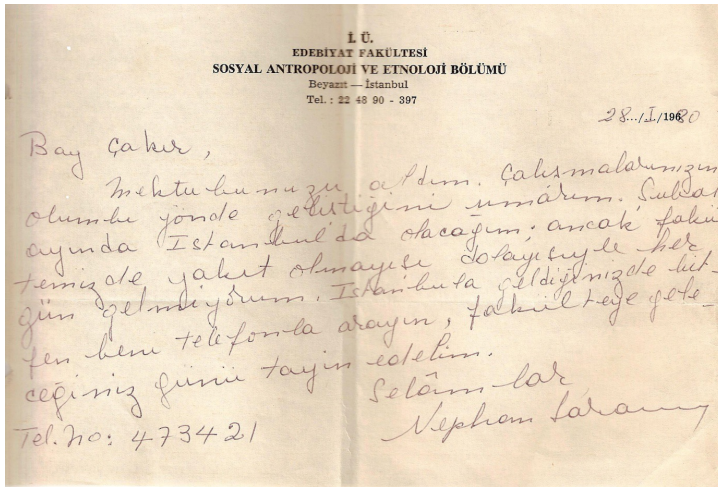 İ. Ü.
EDEBİYAT FAKÜLTESİ
SOSYAL ANTROPOLOJİ VE ETNOLOJİ BÖLÜMÜ
Beyazıt — İstanbul
Tel. : 22 48 90 - 397
28.../I/1980
Bay Çakır,
Mektubunuzu aldım. Çalışmalarınızın
olumlu yönde geliştiğini umarım. Şubat
ayında İstanbul'da olacağım; ancak fakül
temizde yakıt olmayışı dolayısıyle her
gün gelmiyorum. İstanbula geldiğinizde lüt-
fen beni telefonla arayın, fakülteye gele-
ceğiniz günü tayin edelim.
Selâmlar
Nephan Saran
Tel. no: 473421